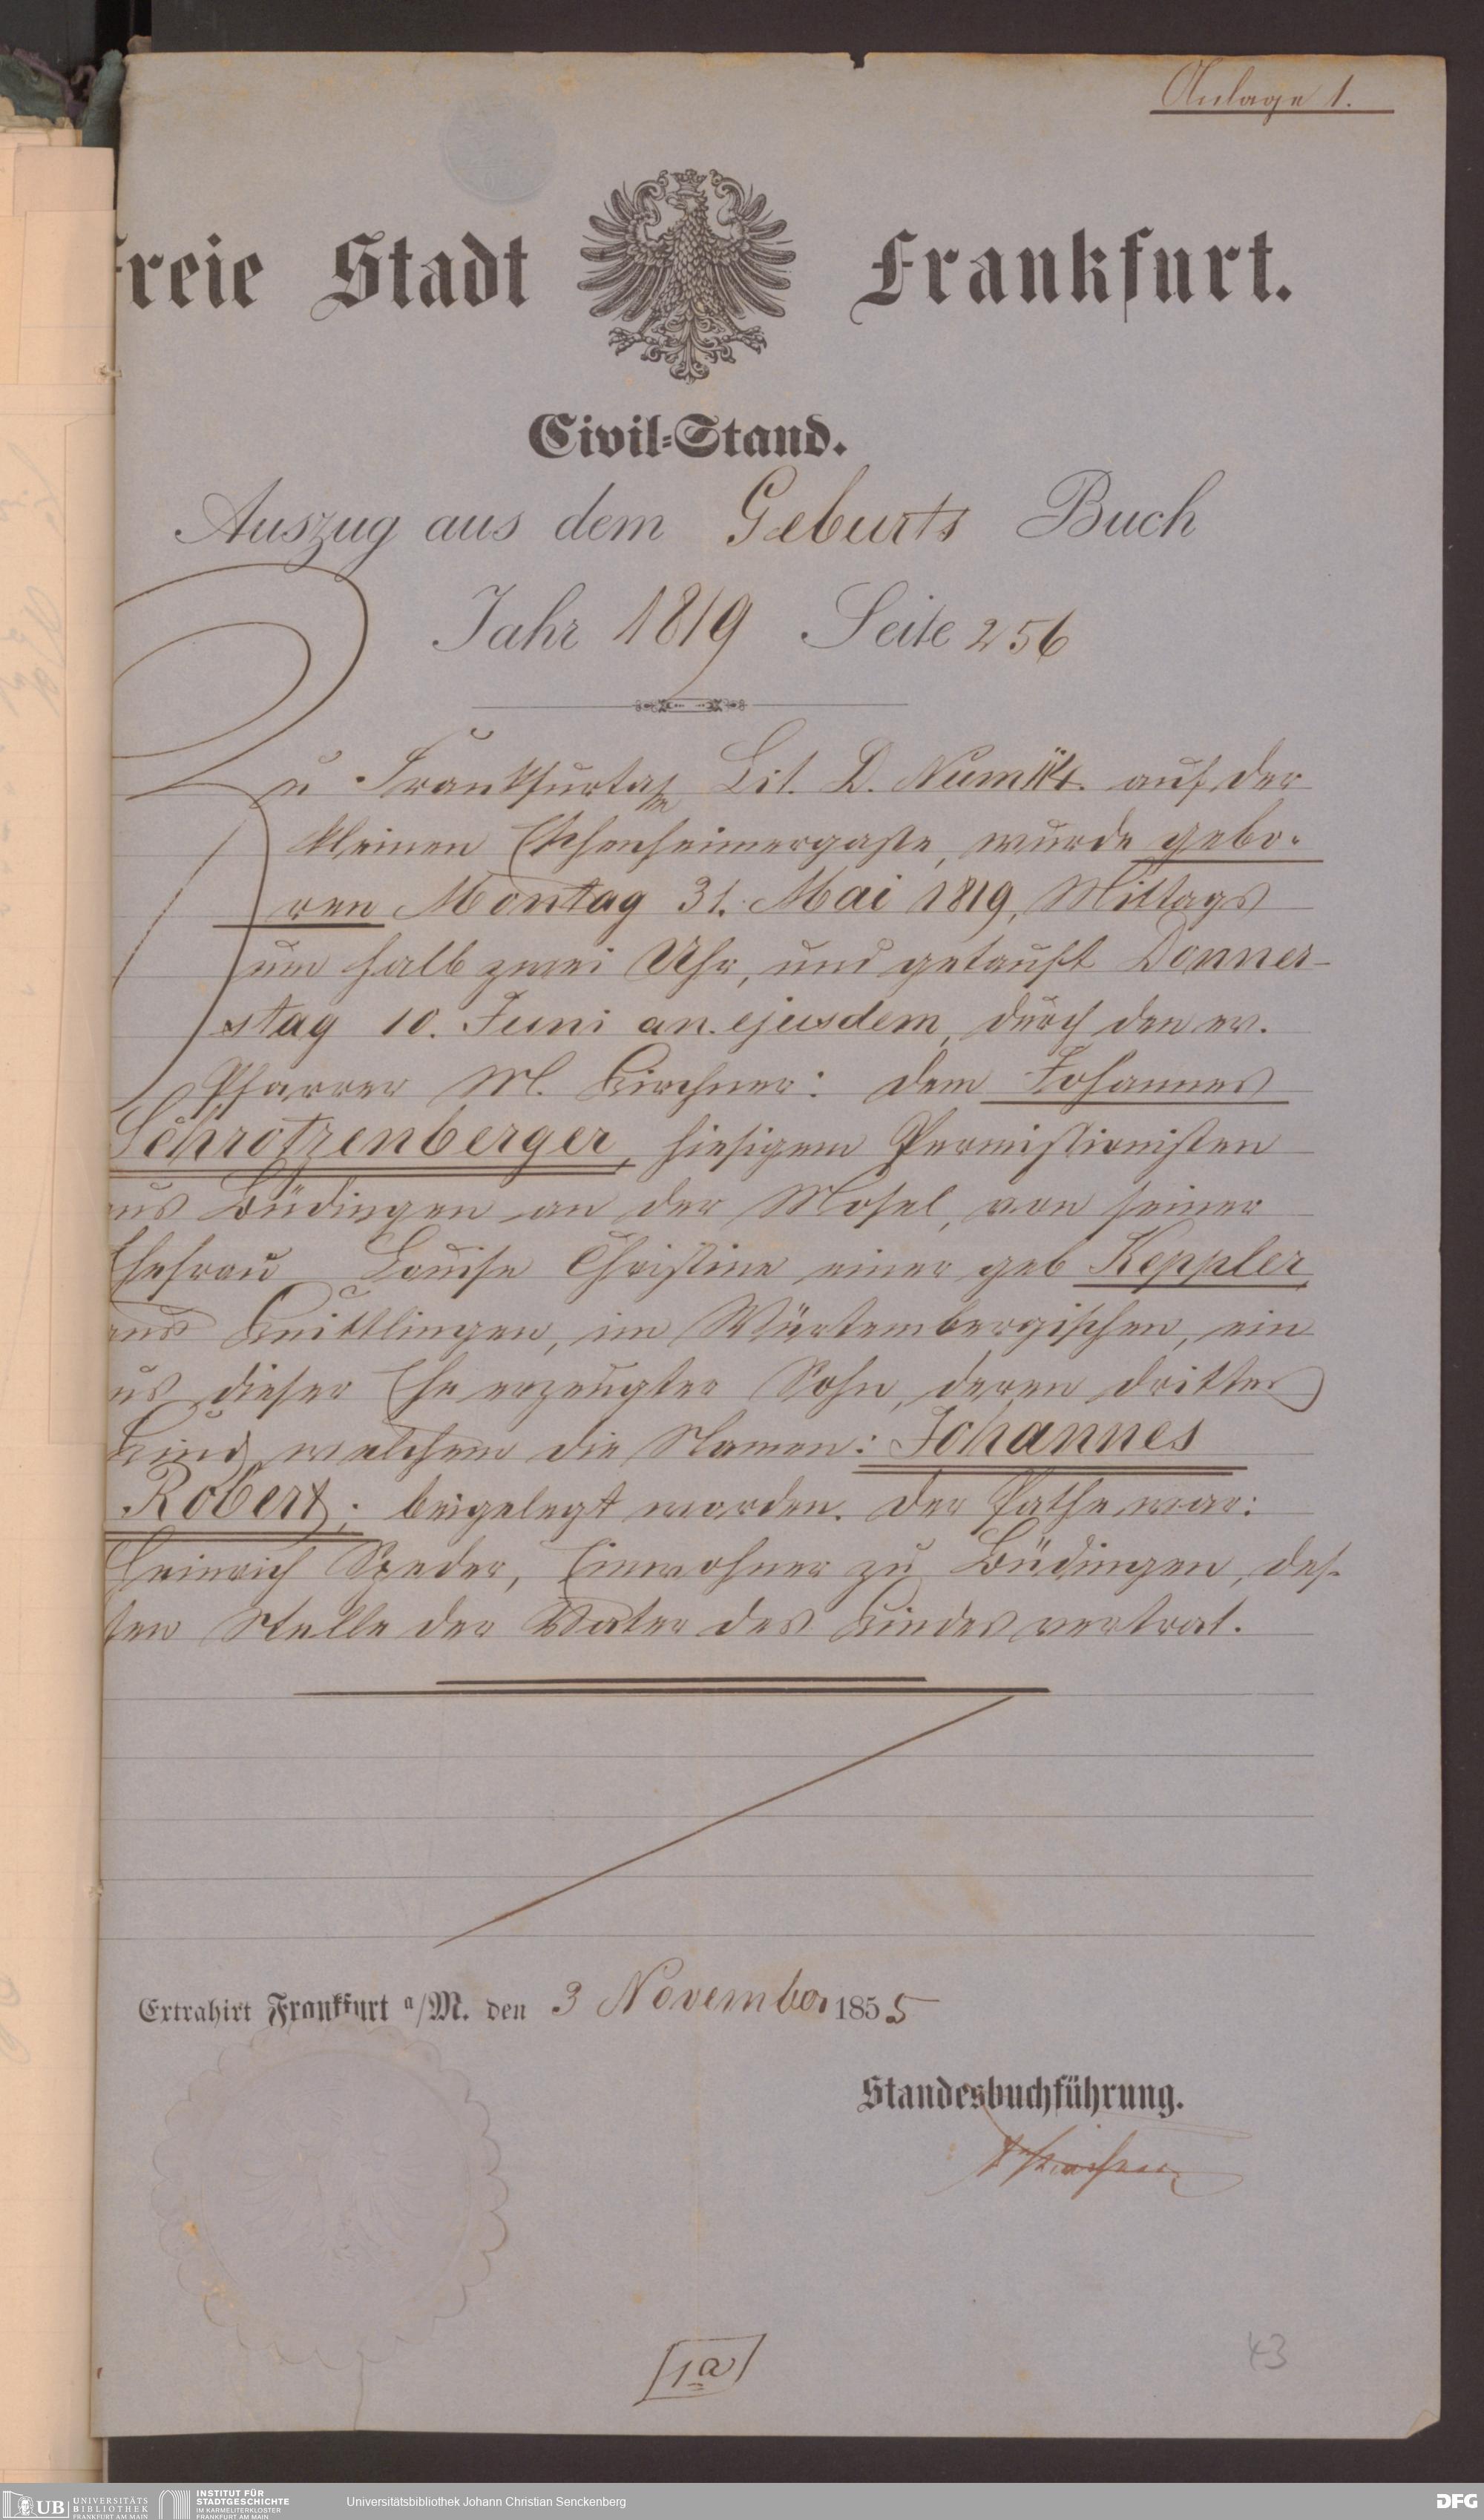 Anlage 1.
Freie Stadt Frankfurt.
Civil-Stand.
Auszug aus dem Geburts Buch
Jahr 1819 Seite 256
Zu Frankfurt a/m Lit. D. Num 114. auf der
kleinen Eschenheimergasse, wurde gebo-
ren Montag 31. Mai 1819, Mittags
um halb zwei Uhr, und getauft Donner-
stag 10. Juni an. ejusdem, durch den ev.
Pfarrer M. Kirchner: dem Johannes
Schrotzenberger, hiesigem Permissionisten
aus Büdingen an der Mosel, von seiner
Ehefrau Louise Christine einer geb Keppler
aus Knittlingen, im Würtembergischen, ein
aus dieser Ehe erzeugter Sohn, deren drittes
Kind welchem die Namen: Johannes
Robert; beigelegt worden. Der Pathe war:
Heinrich Seeder, Einwohner zu Büdingen, des-
sen Stelle der Vater des Kindes vertrat.
Extrahirt Frankfurt a/M. den 3 November 1855
Standesbuchführung.
1a
43
UB UNIVERSITÄTS
BIBLIOTHEK
FRANKFURT AM MAIN
INSTITUT FÜR
STADTGESCHICHTE
IM KARMELITERKLOSTER
FRANKFURT AM MAIN
Universitätsbibliothek Johann Christian Senckenberg
DFG